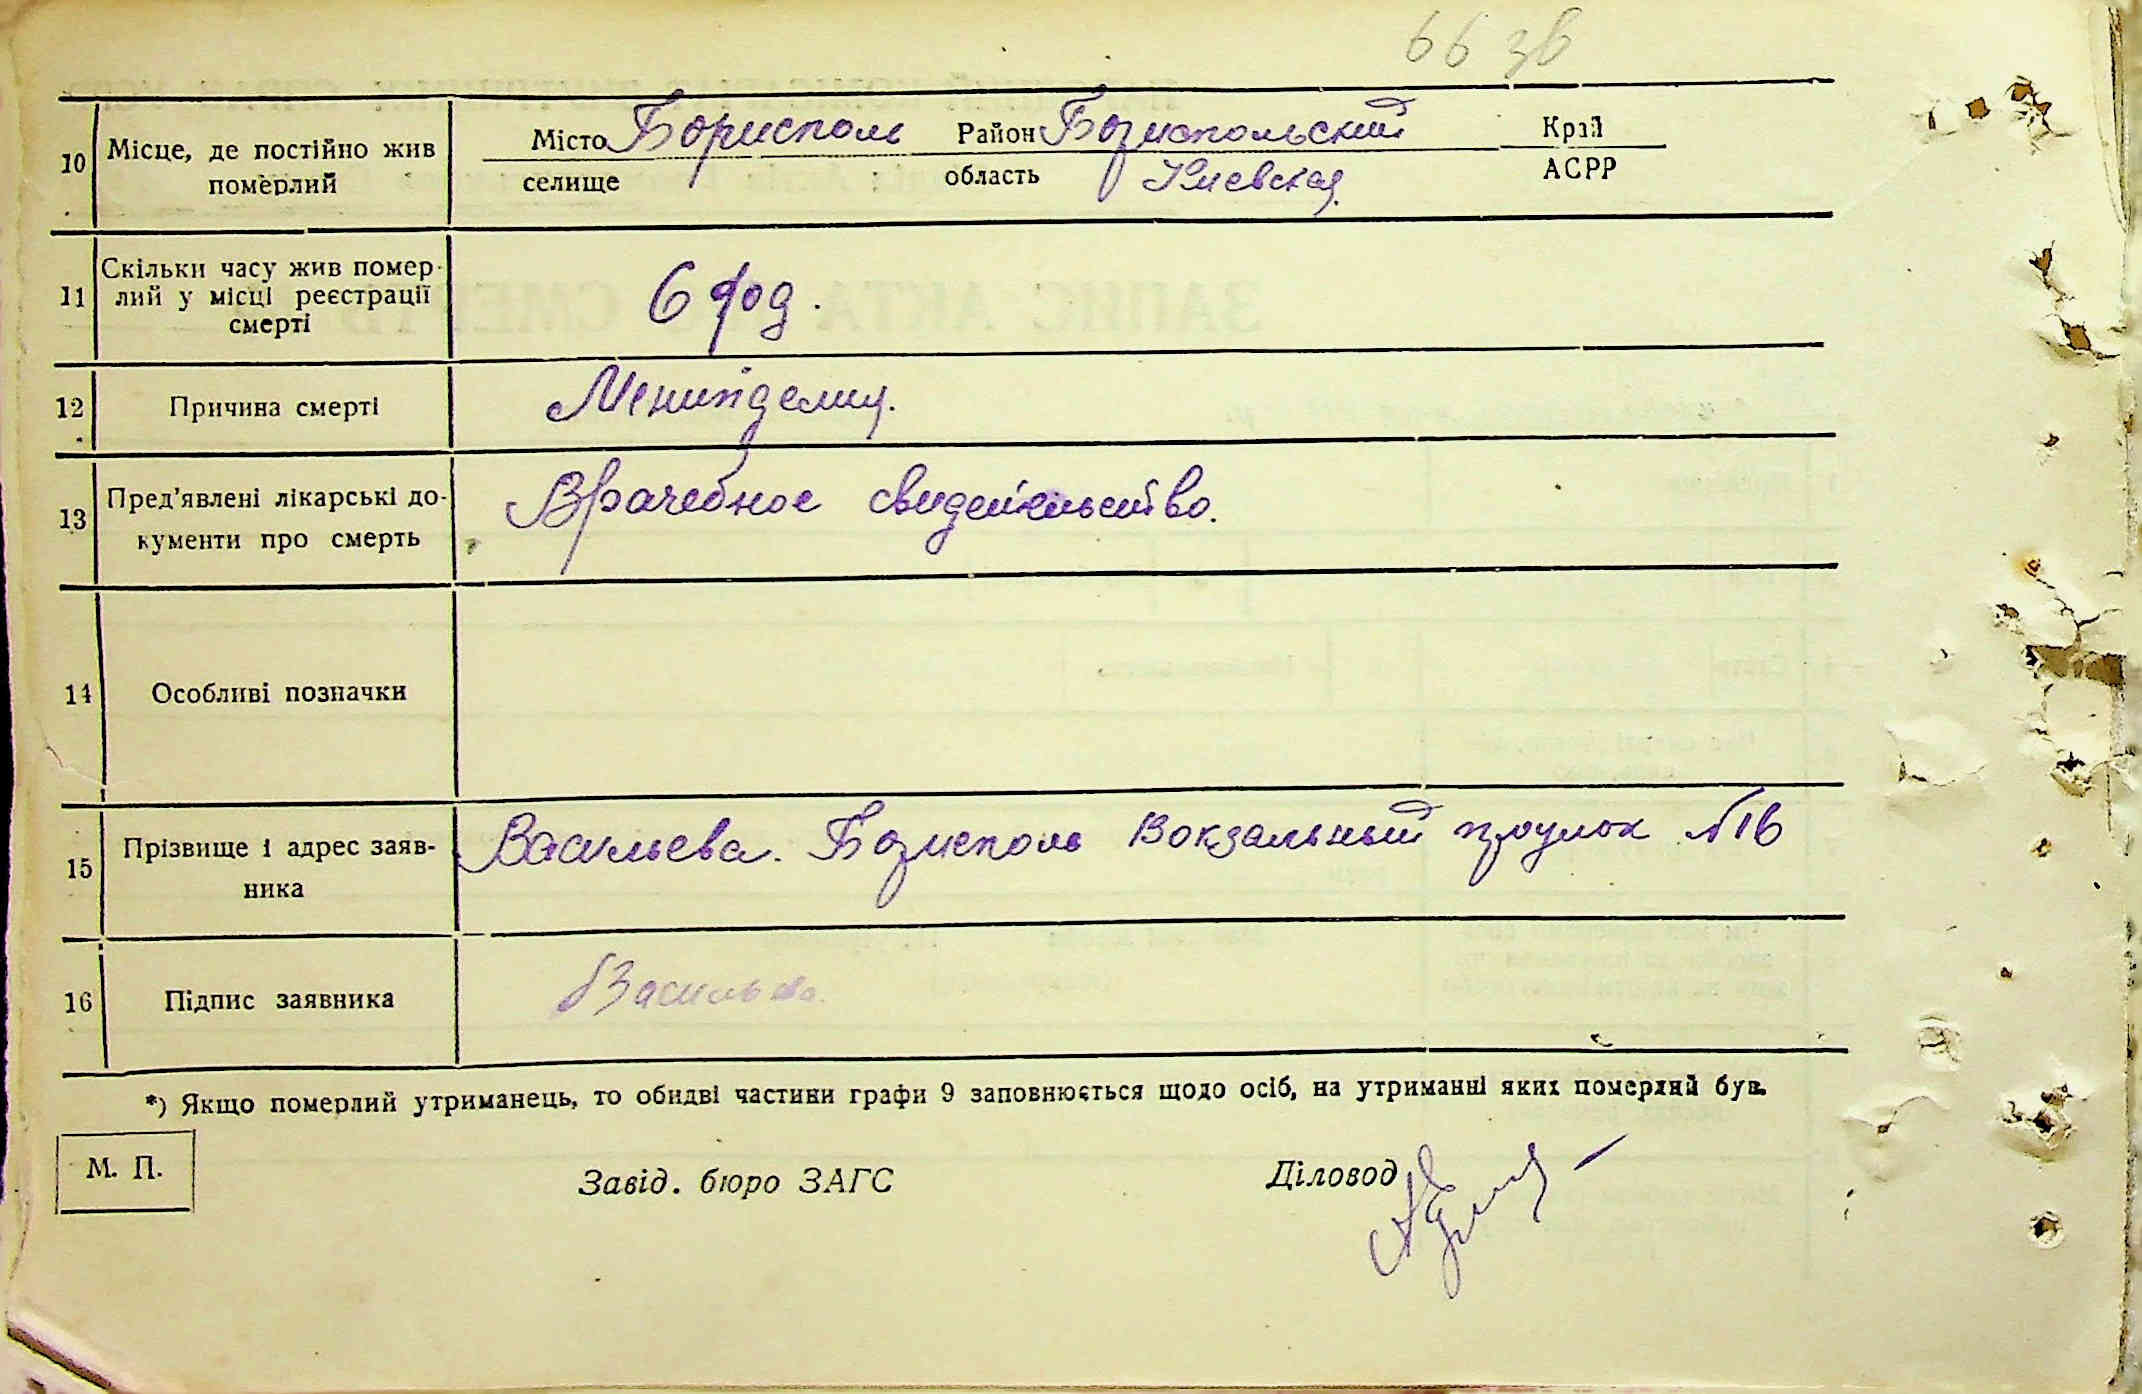 66 зв
10 Місце, де постійно жив Місто Борисполь Район Борispольский Край
померлий селище область Киевская АСРР
11 Скільки часу жив помер-
лий у місці реєстрації 6 год.
смерті
12 Причина смерті
13 Пред'явлені лікарські до- Врачебное свидетельство.
кументи про смерть
14 Особливі позначки
15 Прізвище і адрес заяв- Васильева. Борисполь Вокзальный проулок №16
ника
16 Підпис заявника Васильева.
*) Якщо померлий утриманець, то обидві частини графи 9 заповнюється щодо осіб, на утриманні яких померлий був.
М. П. Завід. бюро ЗАГС Діловод